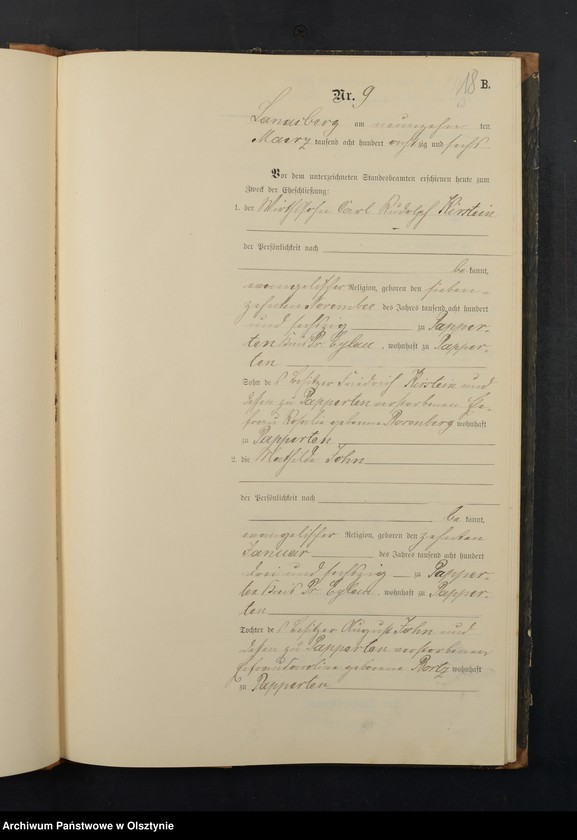 18 B.
Nr. 9
Landsberg am neunzehn ten
Maerz tausend acht hundert achtzig und sechs
Vor dem unterzeichneten Standesbeamten erschienen heute zum
Zweck der Eheschließung:
1. der Wirthssohn Carl Rudolph Kirstein
der Persönlichkeit nach
be kannt,
evangelischer Religion, geboren den sieben-
zehnten November des Jahres tausend acht hundert
und sechszig zu Papper-
ten Kreis Pr. Eylau, wohnhaft zu Papper-
ten
Sohn des Besitzer Friedrich Kirstein und
dessen zu Papperten verstorbenen Ehe-
frau Rosalie geborene Rosenberg wohnhaft
zu Papperten
2. die Mathilde John
der Persönlichkeit nach
be kannt,
evangelischer Religion, geboren den zehnten
Januar des Jahres tausend acht hundert
drei und sechszig zu Papper-
ten Kreis Pr. Eylau, wohnhaft zu Papper-
ten
Tochter des Besitzer August John und
dessen zu Papperten verstorbenen
Ehefrau Caroline geborene wohnhaft
zu Papperten
Archiwum Państwowe w Olsztynie